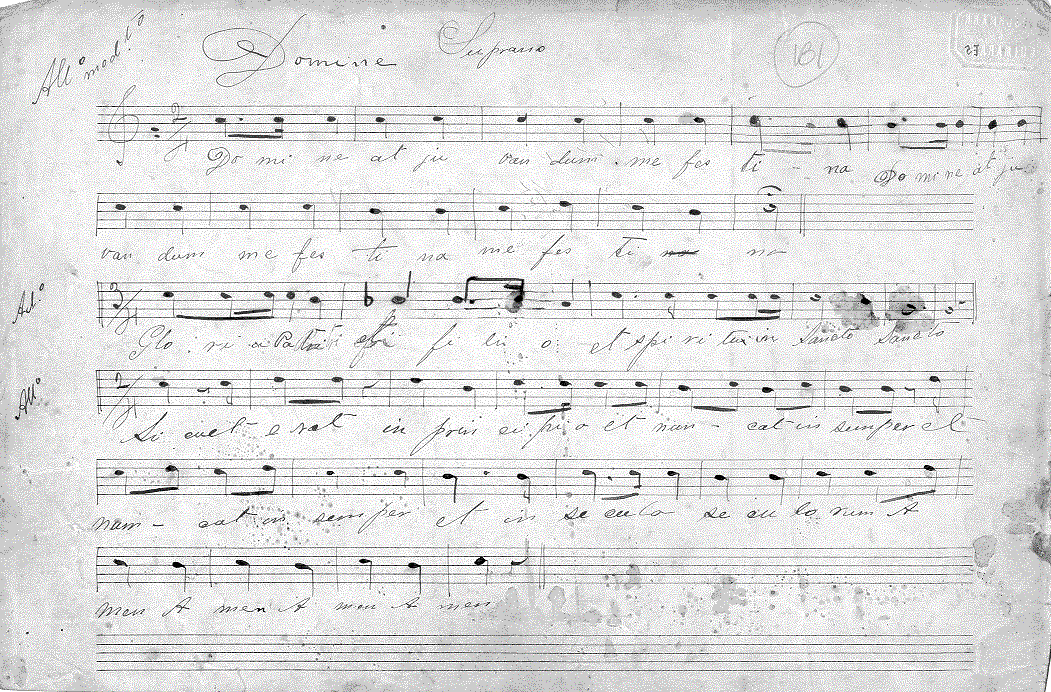 All.º mod.to Domine Soprano 181
Do mi ne at ju van dum me fes ti - na Do mi ne at ju
van dum me fes ti na me fes ti na
Ad.º
Glo ri a Pa tri et fi li o et spi ri tui in Sancto Sancto
All.º
Si cut e rat in prin ci pi o et nun - cat in semper et
num - cat in semper et in se cula se cu lo rum A
men A men A men A men